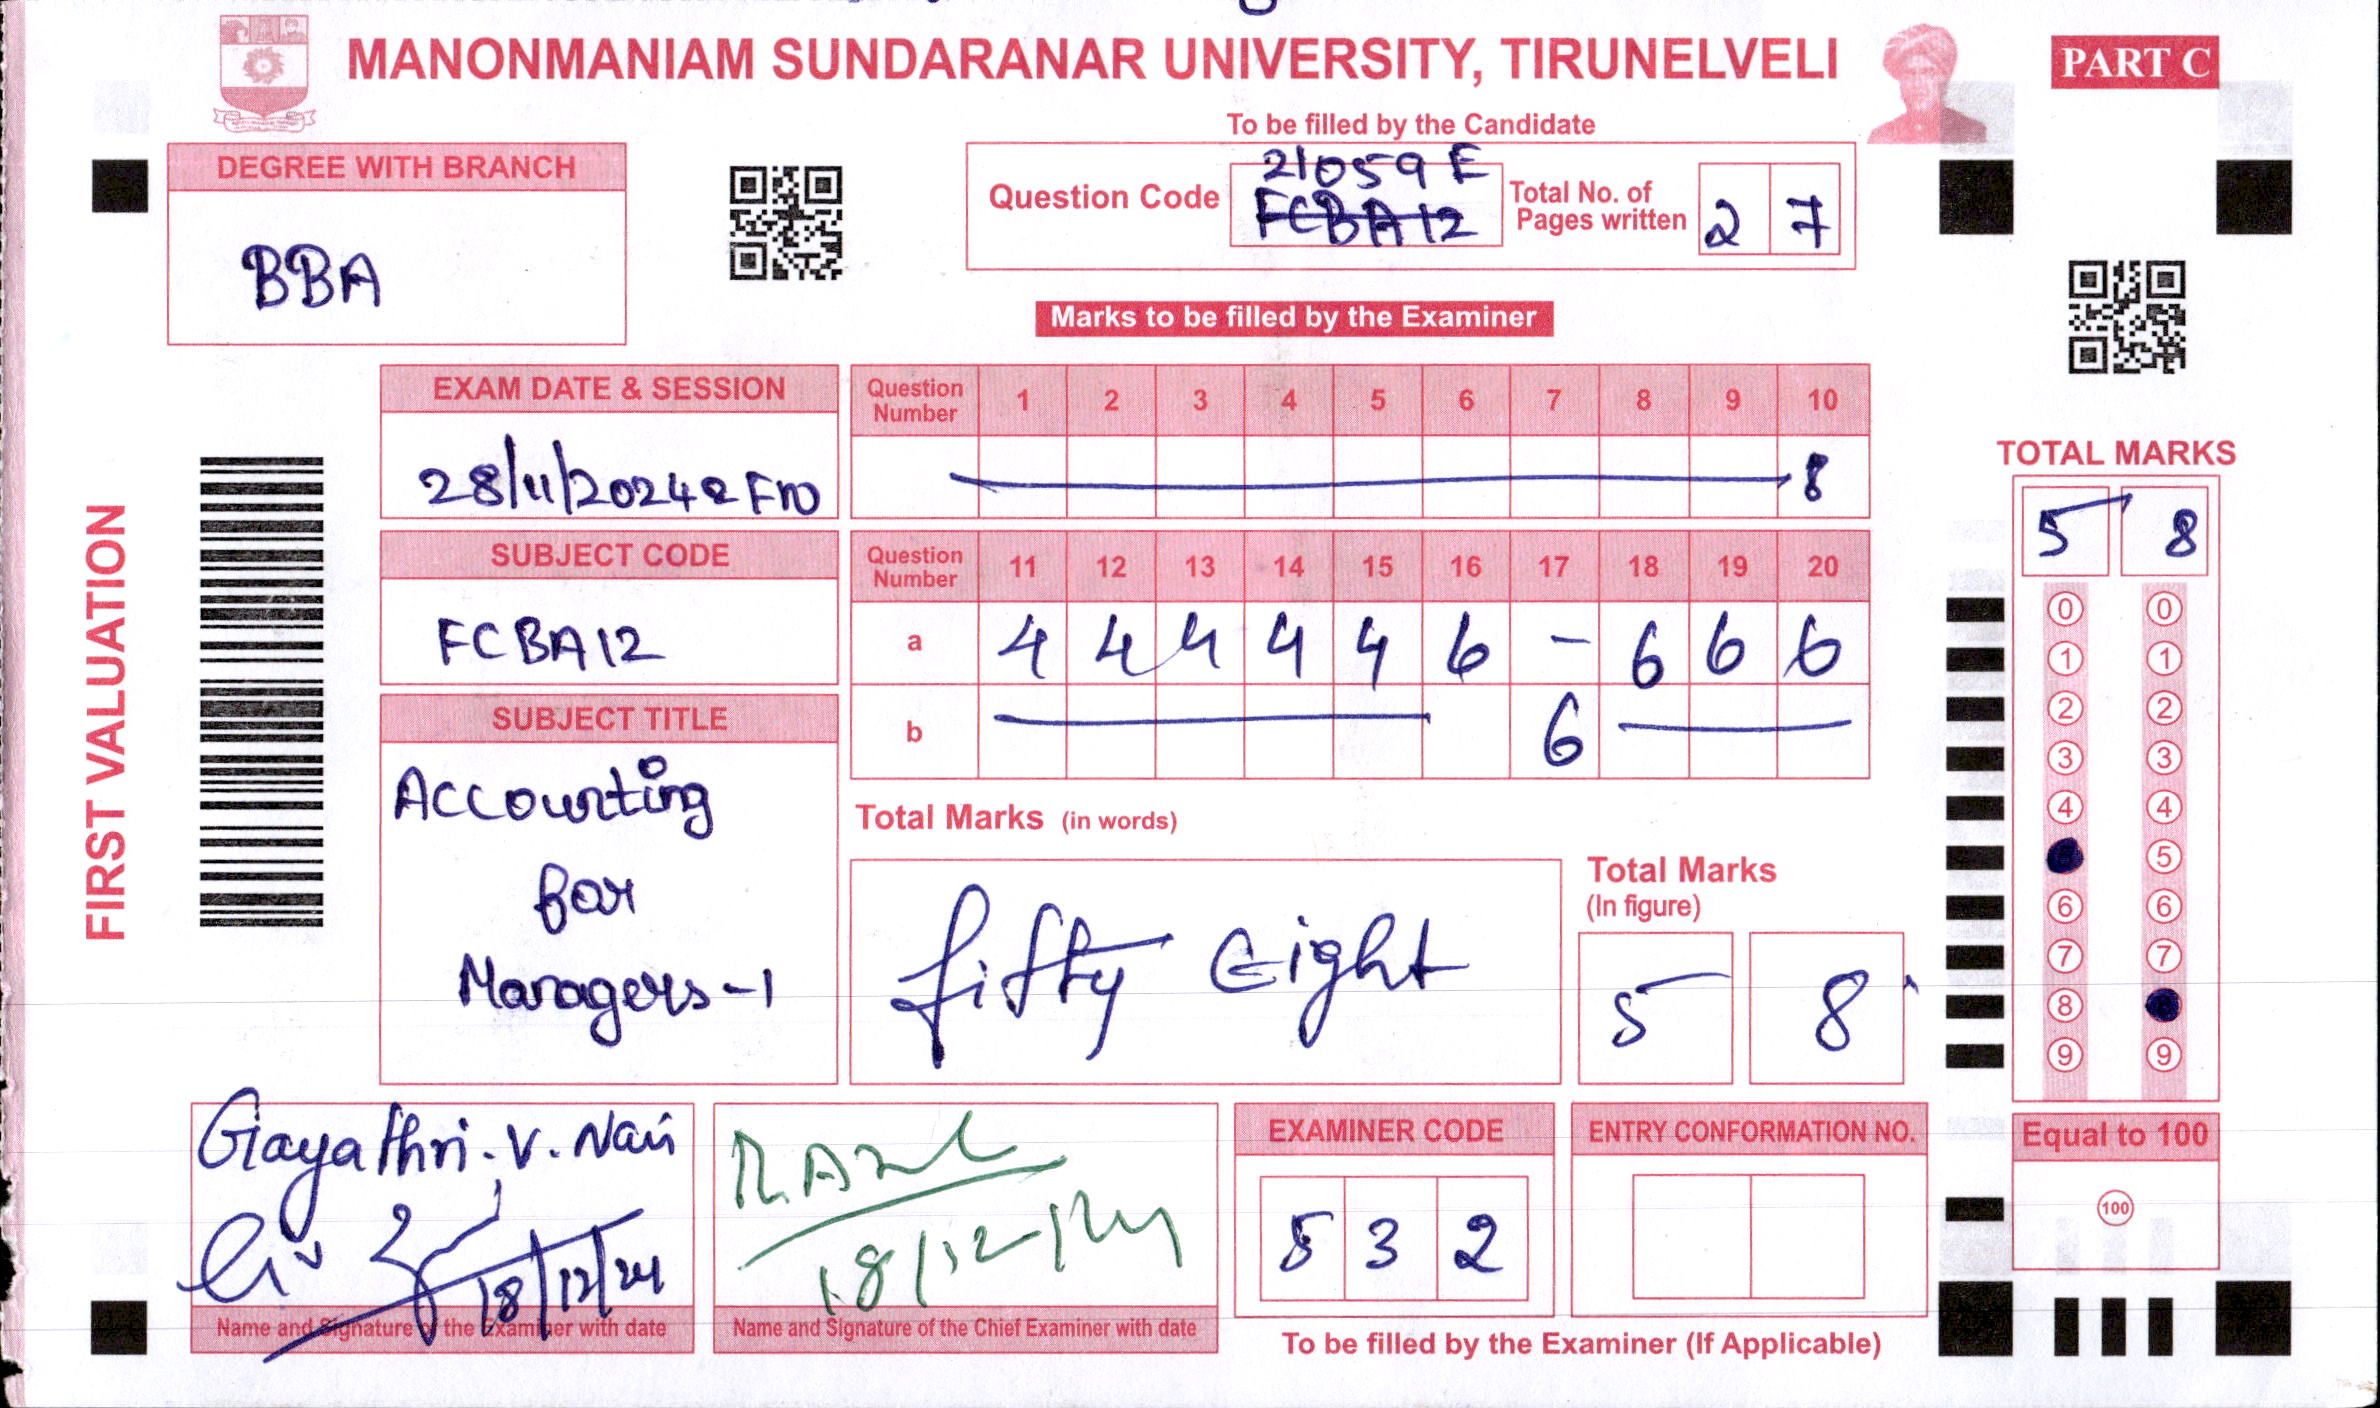 MANONMANIAM SUNDARANAR UNIVERSITY, TIRUNELVELI
PART C
To be filled by the Candidate
DEGREE WITH BRANCH
BBA
Question Code
21059 E
FCBA12
Total No. of
Pages written
2 7
Marks to be filled by the Examiner
EXAM DATE & SESSION
28/11/2024
Question Number 1 2 3 4 5 6 7 8 9 10
8
SUBJECT CODE
FCBA12
Question Number 11 12 13 14 15 16 17 18 19 20
a 4 4 4 4 4 6 - 6 6 6
b 6
SUBJECT TITLE
Accounting
for
Managers-1
Total Marks (in words)
fifty Eight
Total Marks
(In figure)
5 8
FIRST VALUATION
TOTAL MARKS
5 8
0 0
1 1
2 2
3 3
4 4
5
6 6
7 7
8
9 9
Gayathri. V. Nair
18/12/24
Name and Signature of the Examiner with date
18/12/24
Name and Signature of the Chief Examiner with date
EXAMINER CODE
5 3 2
ENTRY CONFORMATION NO.
To be filled by the Examiner (If Applicable)
Equal to 100
100